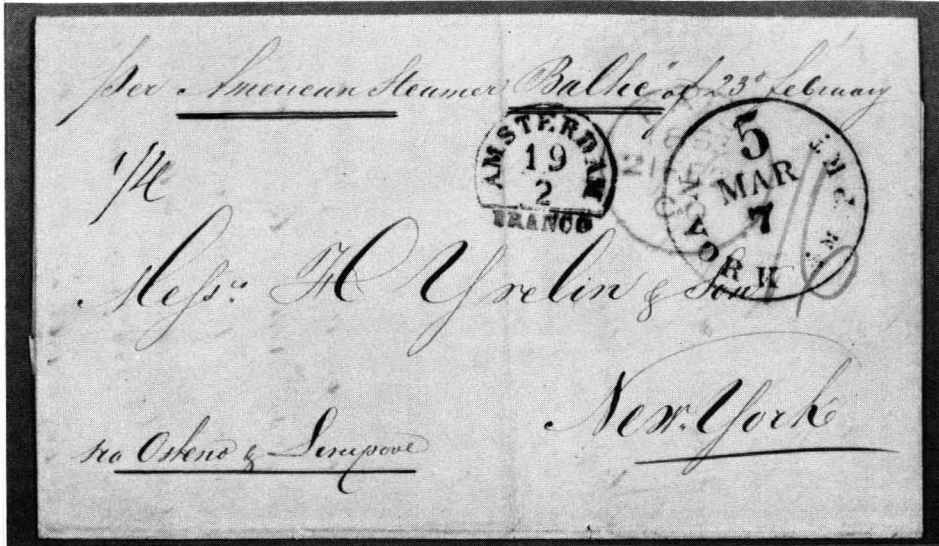 per American Steamer "Baltic" of 23d February
1/4
AMSTERDAM
19
2
FRANCO
5
MAR
7
YORK
Messrs H Yrelin & Son
New York
via Ostend & Liverpool